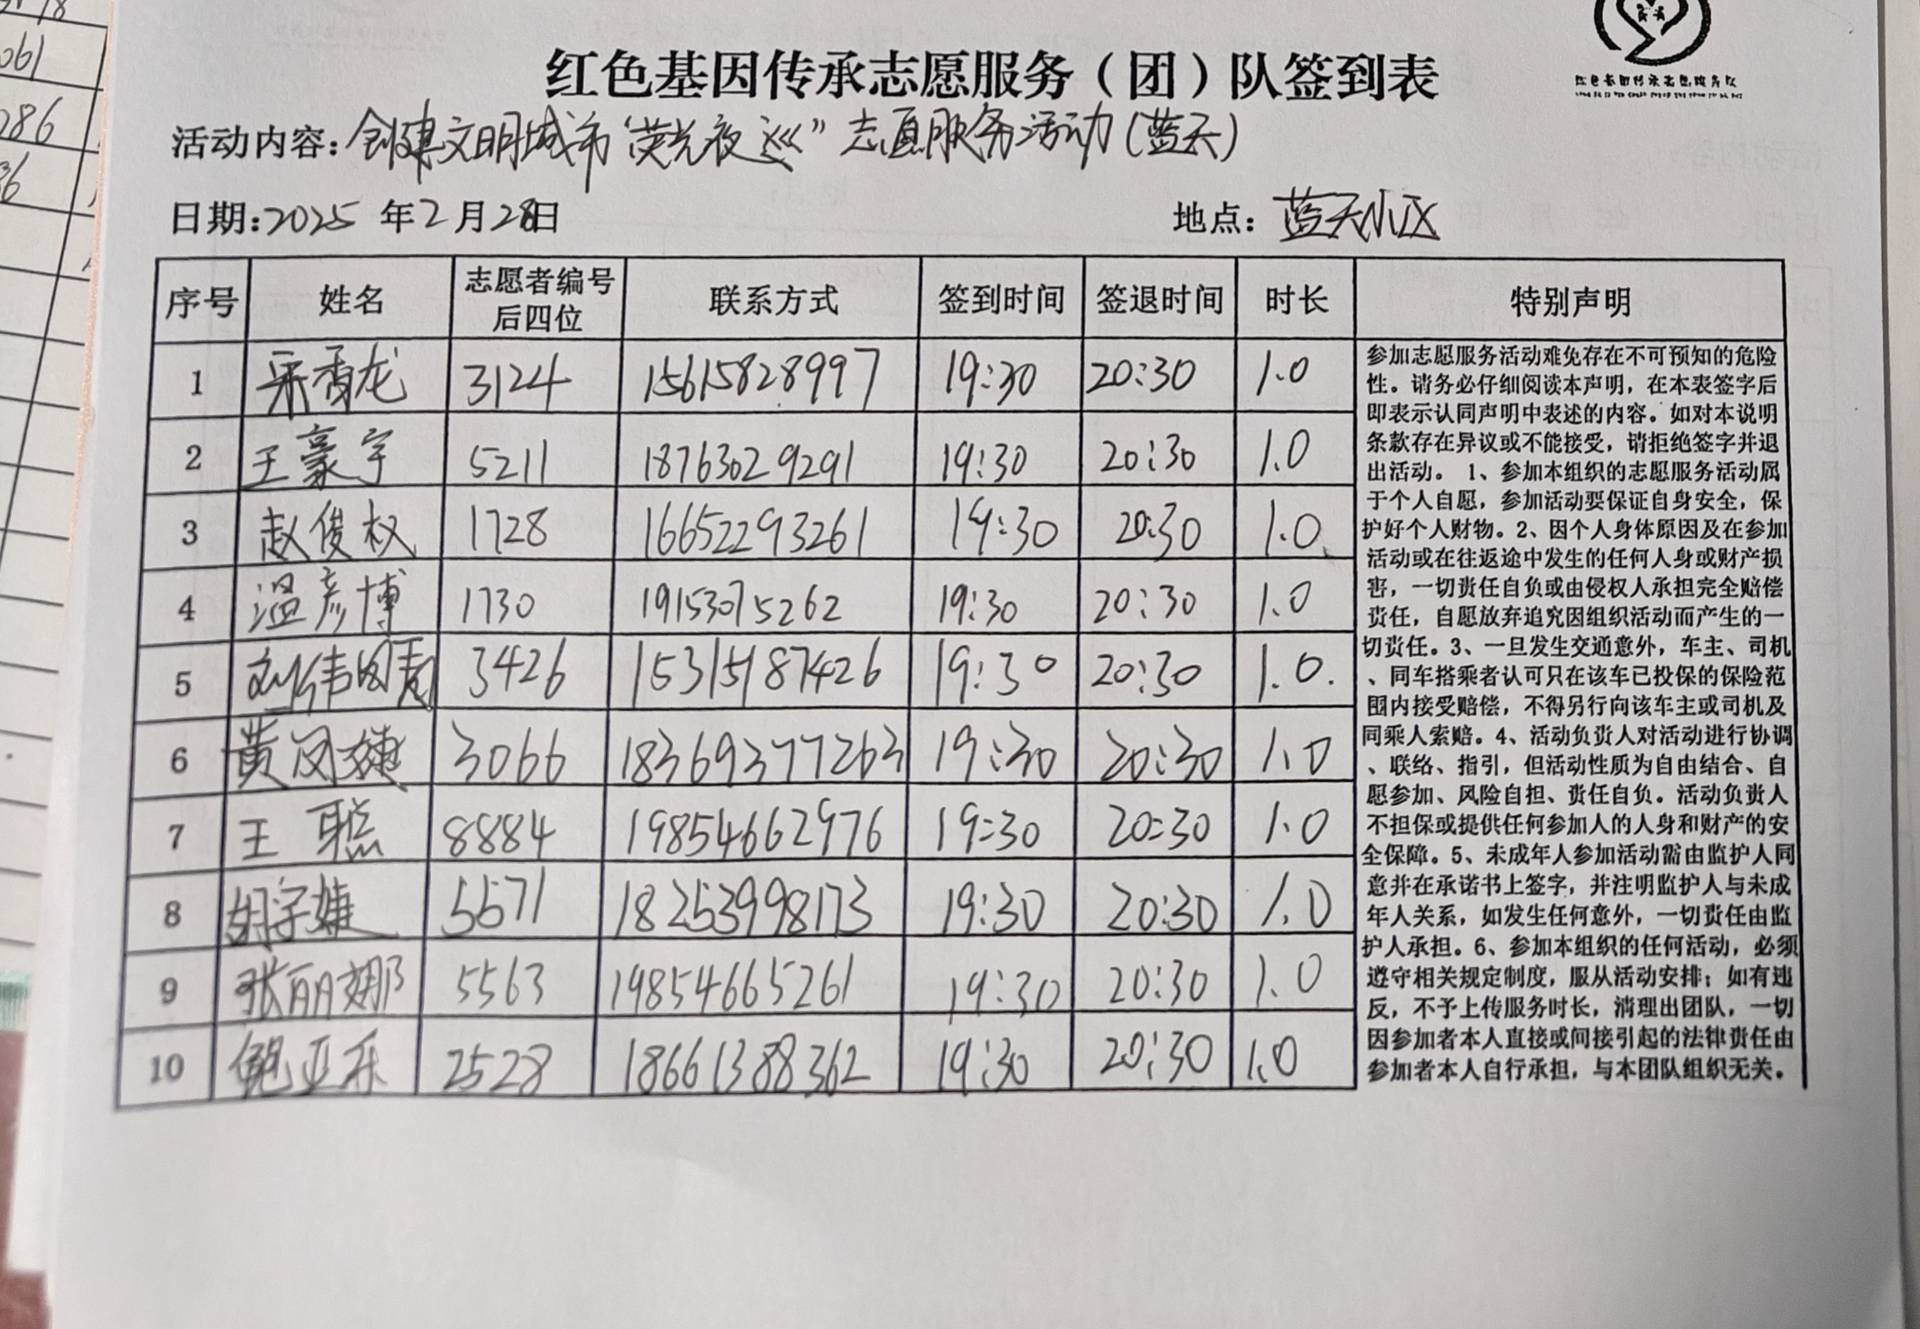 红色基因传承志愿服务（团）队签到表
活动内容：创建文明城市“荧光夜巡”志愿服务活动（蓝天）
日期：2025 年 2 月 28日 地点：蓝天小区
序号 姓名 志愿者编号后四位 联系方式 签到时间 签退时间 时长 特别声明
1 香龙 3124 15615828997 19:30 20:30 1.0
2 王豪宇 5211 18763029291 19:30 20:30 1.0
3 赵俊权 1728 16652293261 19:30 20:30 1.0
4 温彦博 1730 19153075262 19:30 20:30 1.0
5 刘伟 3426 15315187426 19:30 20:30 1.0.
6 黄凤婕 3066 18369377263 19:30 20:30 1.0
7 王聪 8884 19854662976 19:30 20:30 1.0
8 胡宇婕 5571 18253998173 19:30 20:30 1.0
9 张丽娜 5563 19854665261 19:30 20:30 1.0
10 鲍亚乐 2528 18661388362 19:30 20:30 1.0
参加志愿服务活动难免存在不可预知的危险
性。请务必仔细阅读本声明，在本表签字后
即表示认同声明中表述的内容。如对本说明
条款存在异议或不能接受，请拒绝签字并退
出活动。 1、参加本组织的志愿服务活动属
于个人自愿，参加活动要保证自身安全，保
护好个人财物。2、因个人身体原因及在参加
活动或在往返途中发生的任何人身或财产损
害，一切责任自负或由侵权人承担完全赔偿
责任，自愿放弃追究因组织活动而产生的一
切责任。3、一旦发生交通意外，车主、司机
、同车搭乘者认可只在该车已投保的保险范
围内接受赔偿，不得另行向该车主或司机及
同乘人索赔。4、活动负责人对活动进行协调
、联络、指引，但活动性质为自由结合、自
愿参加、风险自担、责任自负。活动负责人
不担保或提供任何参加人的人身和财产的安
全保障。5、未成年人参加活动需由监护人同
意并在承诺书上签字，并注明监护人与未成
年人关系，如发生任何意外，一切责任由监
护人承担。6、参加本组织的任何活动，必须
遵守相关规定制度，服从活动安排；如有违
反，不予上传服务时长，清理出团队，一切
因参加者本人直接或间接引起的法律责任由
参加者本人自行承担，与本团队组织无关。
061
286
36